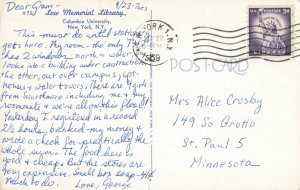 Dear Gram, 9/23 - Tues,
Low Memorial Library,
Columbia University,
New York, N.Y.
This must do until
gets here. My room - the only
has 2 windows, north & west
looks into a building under contruction
the other, out over campus, apt.
houses & water-towers. There are
from Swarthmore including me & my
roommate & we're all on this floor.
Yesterday I registered in
2½ hours, banked my money &
wrote a check for practically the
whole sum. The food here is
good & cheap. But the stores are
very expensive. Small box soap - 41¢
Much to do. Love, George
NEW YORK, N.Y.
1959
U.S. POSTAGE 3¢
POSTCARD
Mrs. Alice Crosby
149 So. Grotto
St. Paul 5
Minnesota